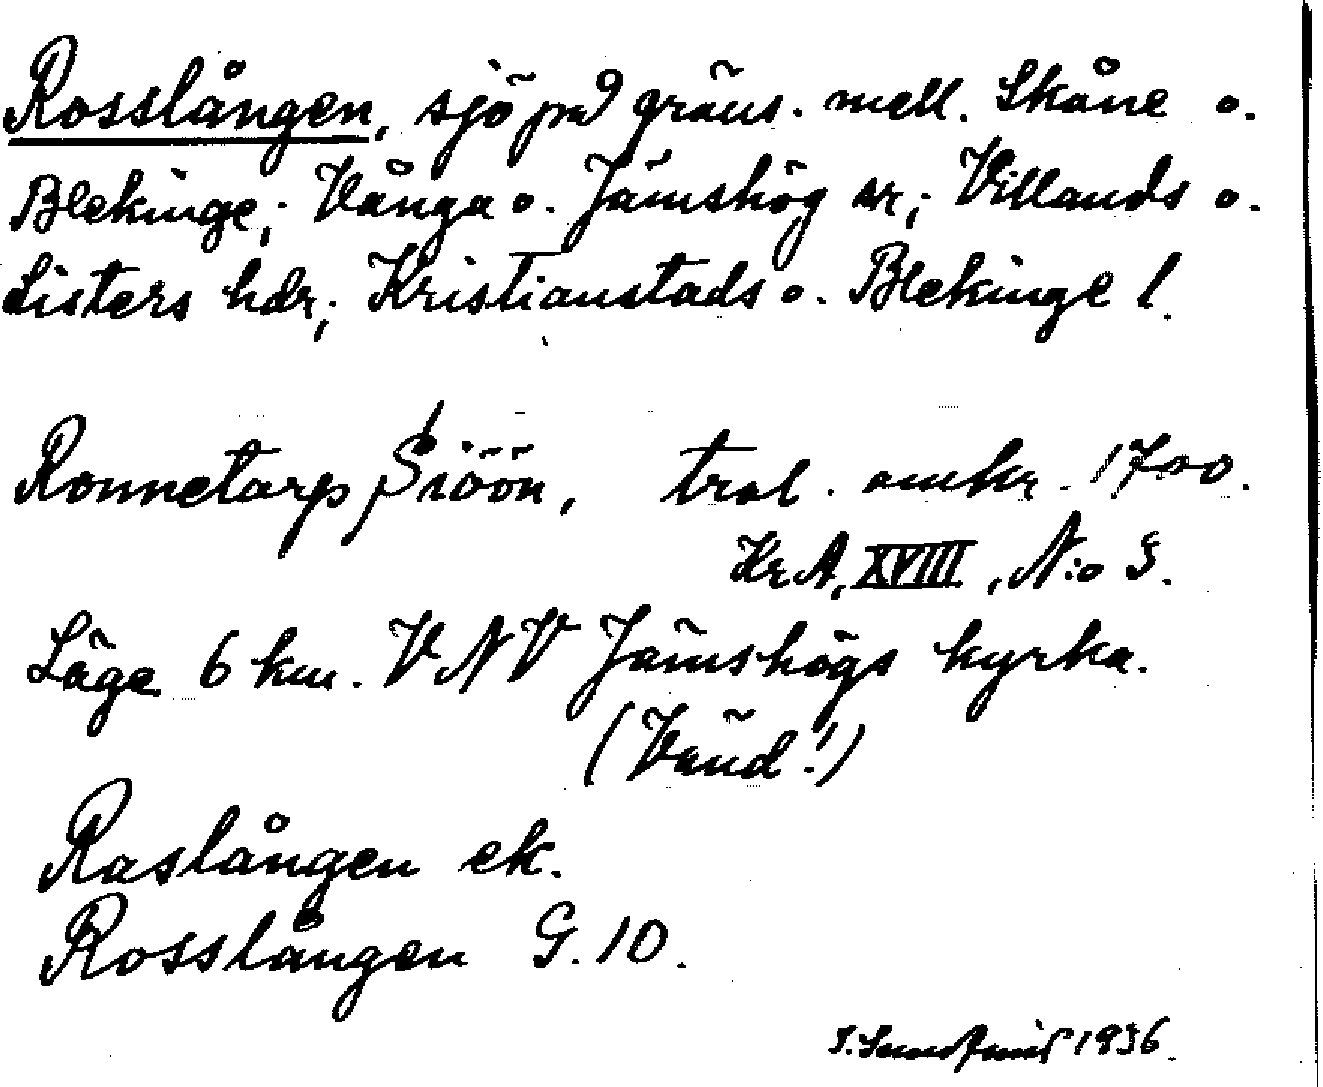 Rosslången, sjö på gräns. mell. Skåne o.
Blekinge; Vånga o. Jämshög sr; Villands o.
Listers hdr; Kristianstads o. Blekinge l.
Ronnetarp Siöön, trol. omkr. 1700.
KrA, XVIII, N:o 3.
Läge 6 km. VNV Jämshögs kyrka.
(Vänd!)
Raslången ek.
Rosslången G. 10.
1936